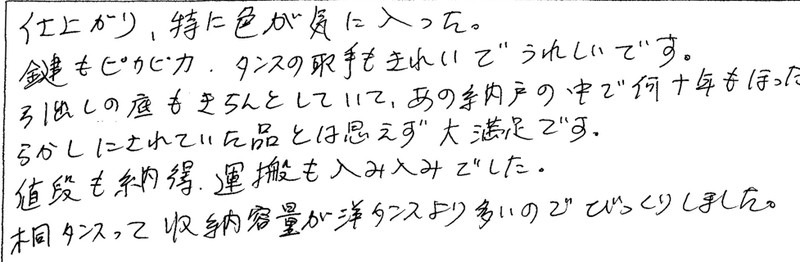 仕上がり、特に色が気に入った。
鍵もピカピカ、タンスの取手もきれいでうれしいです。
引出しの底もきちんとしていて、あの納戸の中で何十年もほった
らかしにされていた品とは思えず大満足です。
値段も納得、運搬も入み入みでした。
桐タンスって収納容量が洋タンスより多いのでびっくりしました。